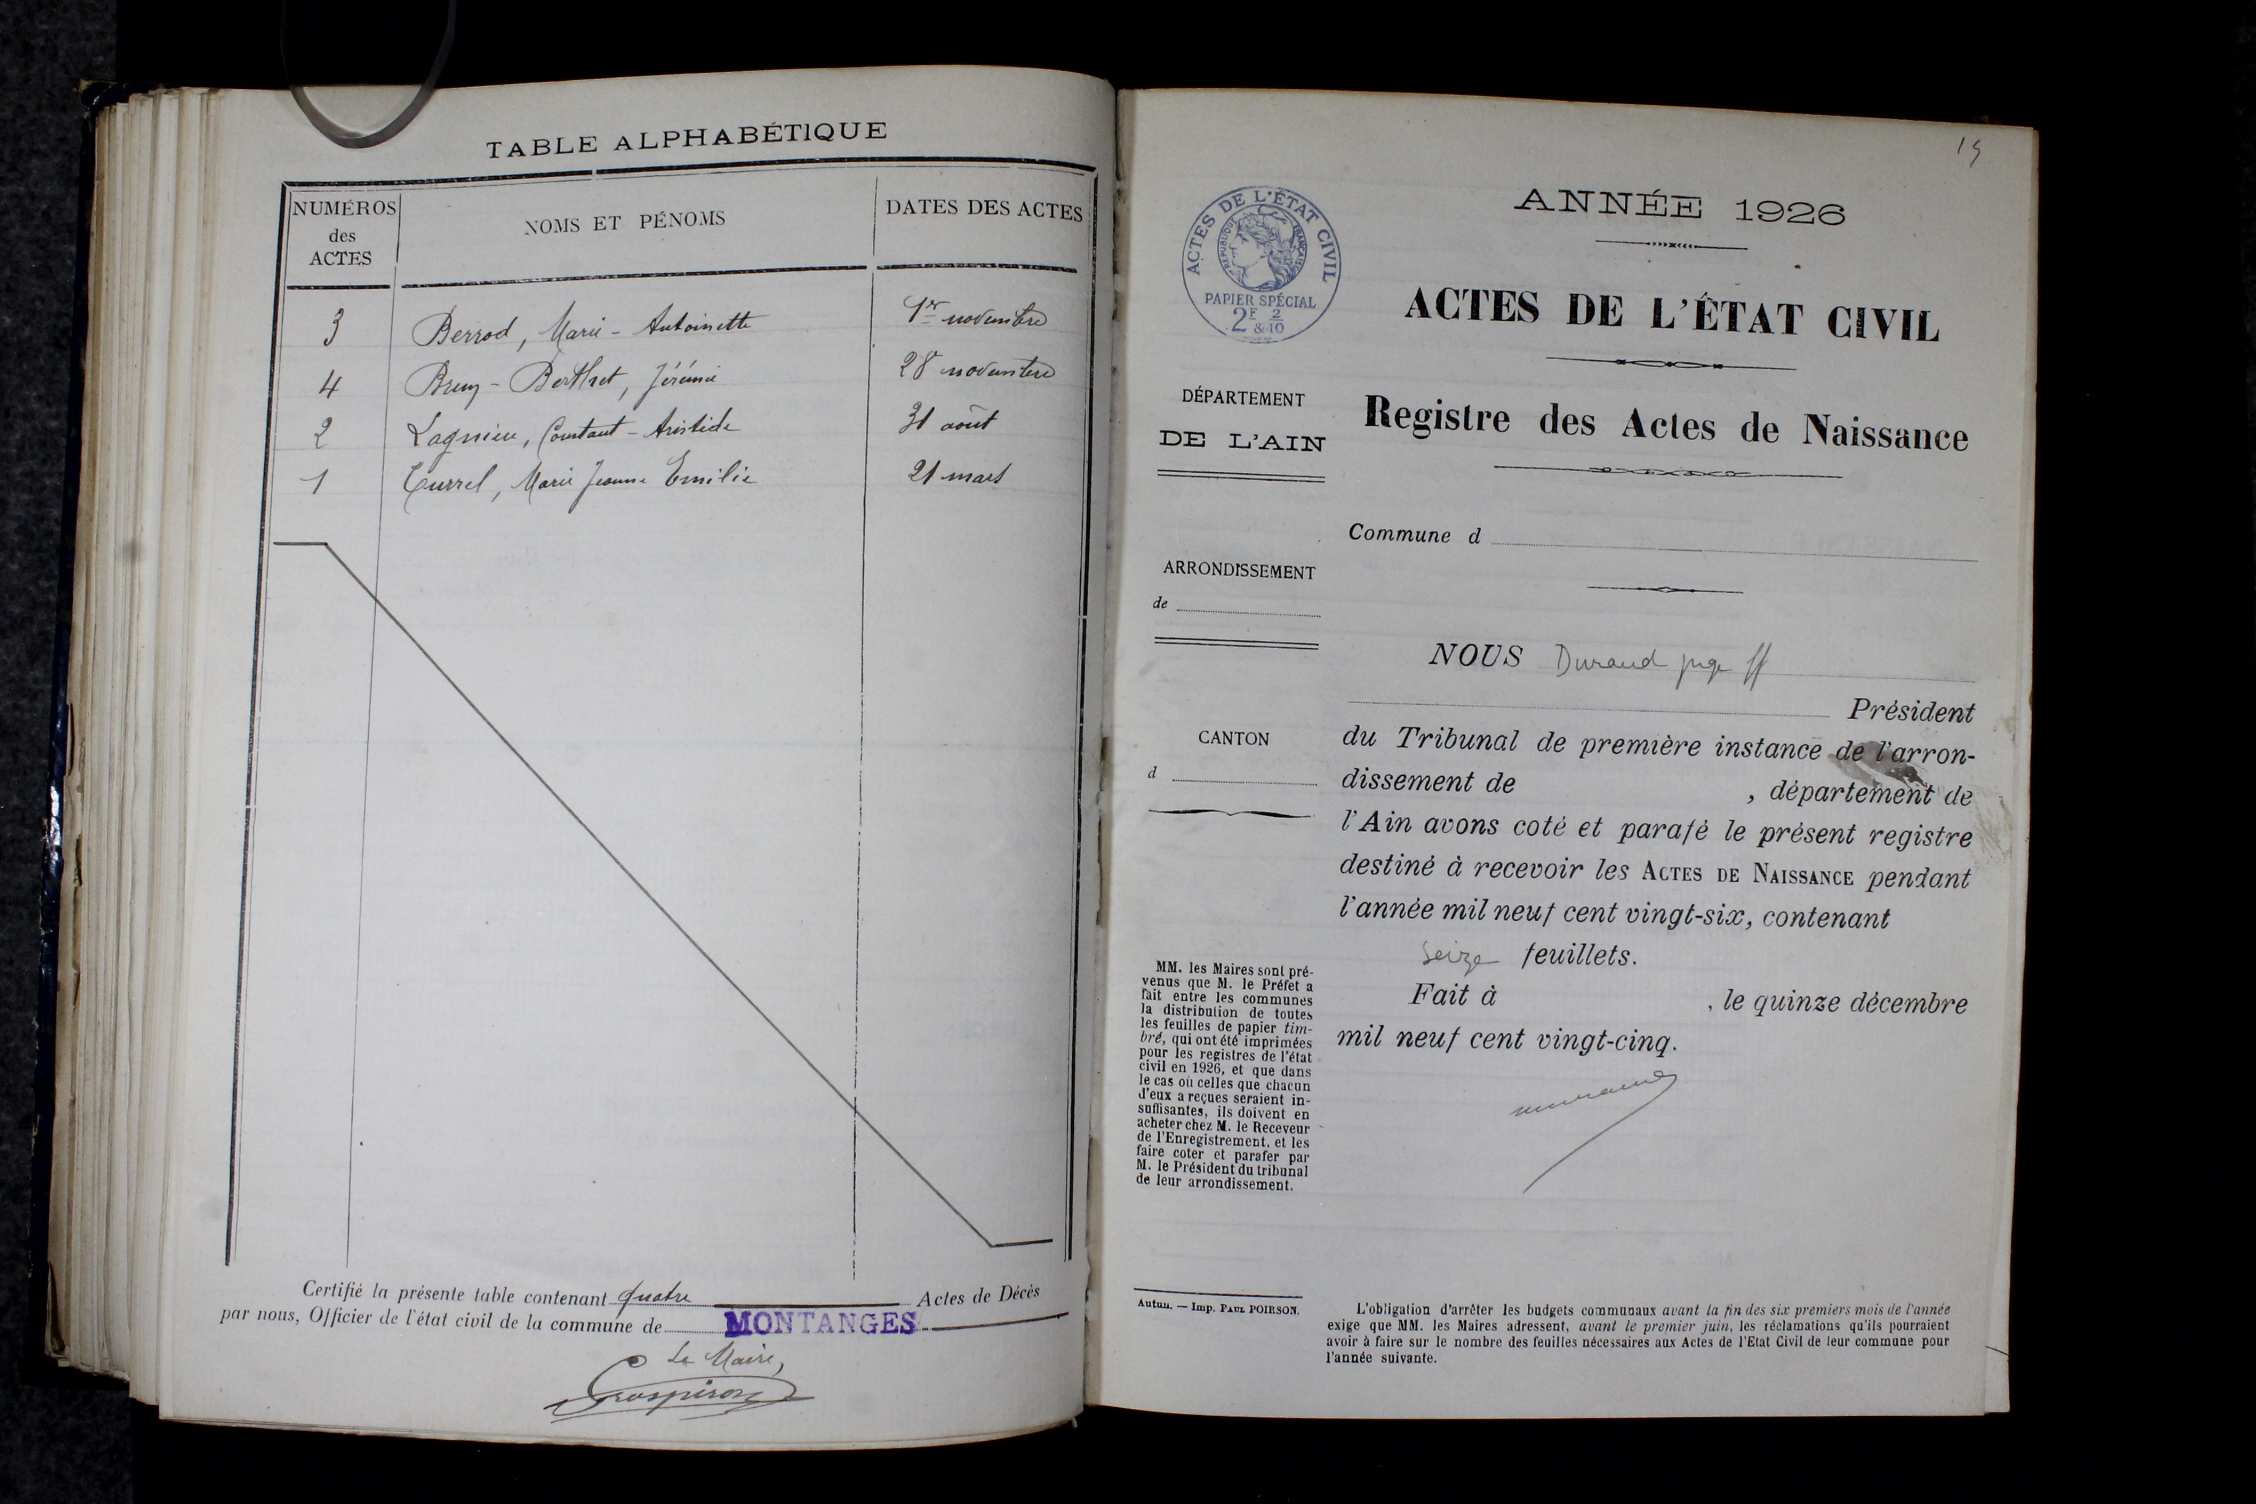 TABLE ALPHABÉTIQUE
NUMÉROS
des
ACTES
NOMS ET PÉNOMS
DATES DES ACTES
3 Berrod, Marie-Antoinette 1er novembre
4 Bruy-Berthet, Jérémie 28 novembre
2 Lagnieu, Constant-Aristide 31 août
1 Turrel, Marie Jeanne Emilie 21 mars
Certifié la présente table contenant quatre Actes de Décès
par nous, Officier de l'état civil de la commune de MONTANGES
Le Maire,
Grospiron
19
ACTES DE L'ÉTAT CIVIL
RÉPUBLIQUE FRANÇAISE
PAPIER SPÉCIAL
2F & 2/10
ANNÉE 1926
ACTES DE L'ÉTAT CIVIL
Registre des Actes de Naissance
DÉPARTEMENT
DE L'AIN
Commune d
ARRONDISSEMENT
de
CANTON
d
NOUS Durand juge ff
Président
du Tribunal de première instance de l'arron-
dissement de , département de
l'Ain avons coté et parafé le présent registre
destiné à recevoir les ACTES DE NAISSANCE pendant
l'année mil neuf cent vingt-six, contenant
seize feuillets.
Fait à , le quinze décembre
mil neuf cent vingt-cinq.
MM. les Maires sont pré-
venus que M. le Préfet a
fait entre les communes
la distribution de toutes
les feuilles de papier tim-
bré, qui ont été imprimées
pour les registres de l'état
civil en 1926, et que dans
le cas où celles que chacun
d'eux a reçues seraient in-
suffisantes, ils doivent en
acheter chez M. le Receveur
de l'Enregistrement, et les
faire coter et parafer par
M. le Président du tribunal
de leur arrondissement.
Autun. — Imp. PAUL POIRSON.
L'obligation d'arrêter les budgets communaux avant la fin des six premiers mois de l'année
exige que MM. les Maires adressent, avant le premier juin, les réclamations qu'ils pourraient
avoir à faire sur le nombre des feuilles nécessaires aux Actes de l'Etat Civil de leur commune pour
l'année suivante.